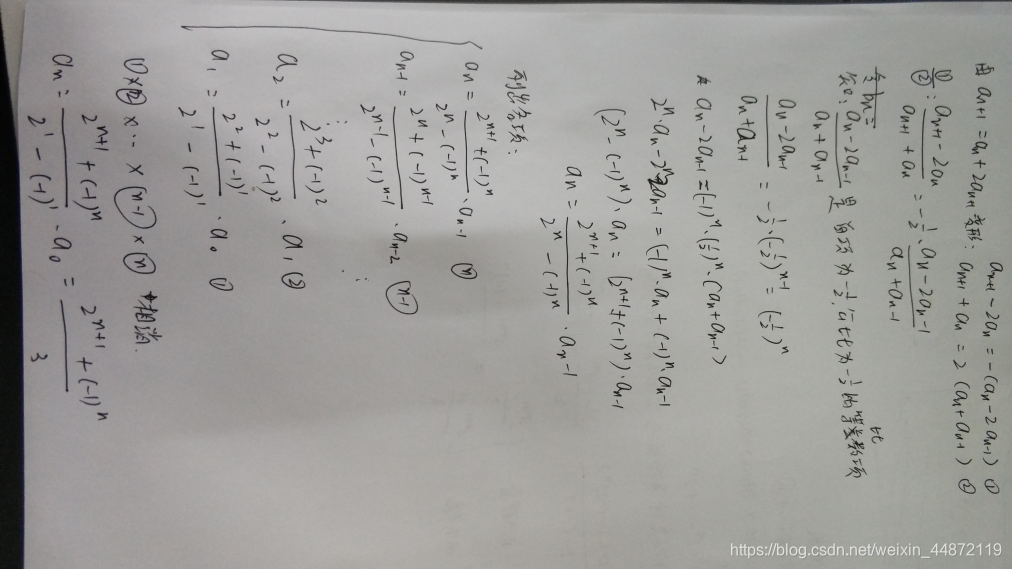 由 aₙ₊₁ = aₙ + 2aₙ₋₁ 变形: aₙ₊₁ - 2aₙ = -(aₙ - 2aₙ₋₁) ①
aₙ₊₁ + aₙ = 2(aₙ + aₙ₋₁) ②
①/②: (aₙ₊₁ - 2aₙ)/(aₙ₊₁ + aₙ) = -1/2 · (aₙ - 2aₙ₋₁)/(aₙ + aₙ₋₁)
(aₙ - 2aₙ₋₁)/(aₙ + aₙ₋₁) 是首项为 -1/2, 公比为 -1/2 的等比数项
(aₙ - 2aₙ₋₁)/(aₙ + aₙ₋₁) = -1/2 · (-1/2)ⁿ⁻¹ = (-1/2)ⁿ
aₙ - 2aₙ₋₁ = (-1)ⁿ · (1/2)ⁿ · (aₙ + aₙ₋₁)
2ⁿ · aₙ - 2ⁿ · 2aₙ₋₁ = (-1)ⁿ · aₙ + (-1)ⁿ · aₙ₋₁
(2ⁿ - (-1)ⁿ) · aₙ = (2ⁿ⁺¹ + (-1)ⁿ) · aₙ₋₁
aₙ = (2ⁿ⁺¹ + (-1)ⁿ)/(2ⁿ - (-1)ⁿ) · aₙ₋₁
列出各项:
aₙ = (2ⁿ⁺¹ + (-1)ⁿ)/(2ⁿ - (-1)ⁿ) · aₙ₋₁ ⓝ
aₙ₋₁ = (2ⁿ + (-1)ⁿ⁻¹)/(2ⁿ⁻¹ - (-1)ⁿ⁻¹) · aₙ₋₂ (n-1)
⋮ ⋮
a₂ = (2³ + (-1)²)/(2² - (-1)²) · a₁ ②
a₁ = (2² + (-1)¹)/(2¹ - (-1)¹) · a₀ ①
① × ② × ⋯ × (n-1) × ⓝ 相消.
aₙ = (2ⁿ⁺¹ + (-1)ⁿ)/(2¹ - (-1)¹) · a₀ = (2ⁿ⁺¹ + (-1)ⁿ)/3
https://blog.csdn.net/weixin_44872119